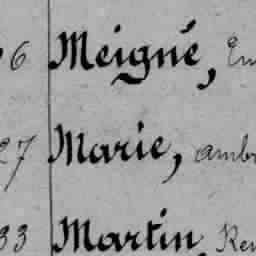 6 Meigné, Em
27 Marie, ambr
33 Martin, Ren